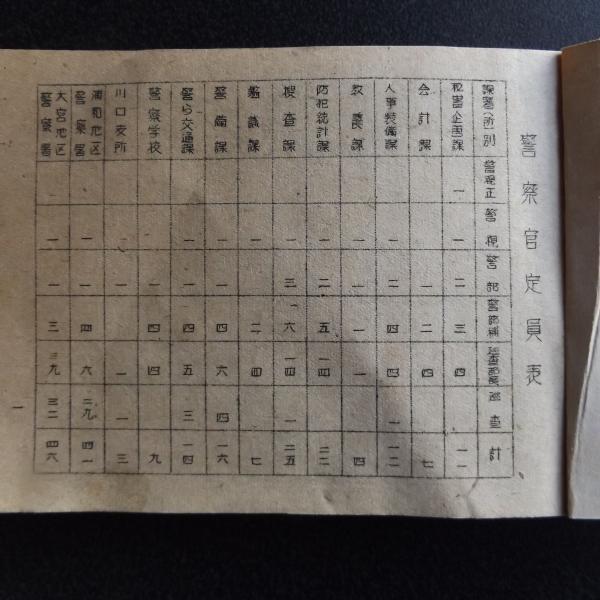 警察官定員表
課署(所)別 警視正 警視 警部 警部補 巡査部長 巡査 計
秘書企画課 一 一 二 三 四 一一
会計課 一 二 四 七
人事装備課 一 二 四 四 一 一二
教養課 一 一 一 一 四
防犯統計課 一 二 五 一四 二二
捜査課 一 三 六 一四 一 二五
鑑識課 一 二 四 七
警備課 一 一 四 六 四 一六
警ら交通課 一 一 四 五 三 一四
警察学校 一 四 四 九
川口支所 一 一 一 三
浦和地区
警察署 一 一 四 六 二九 四一
大宮地区
警察署 一 一 三 九 三二 四六
一